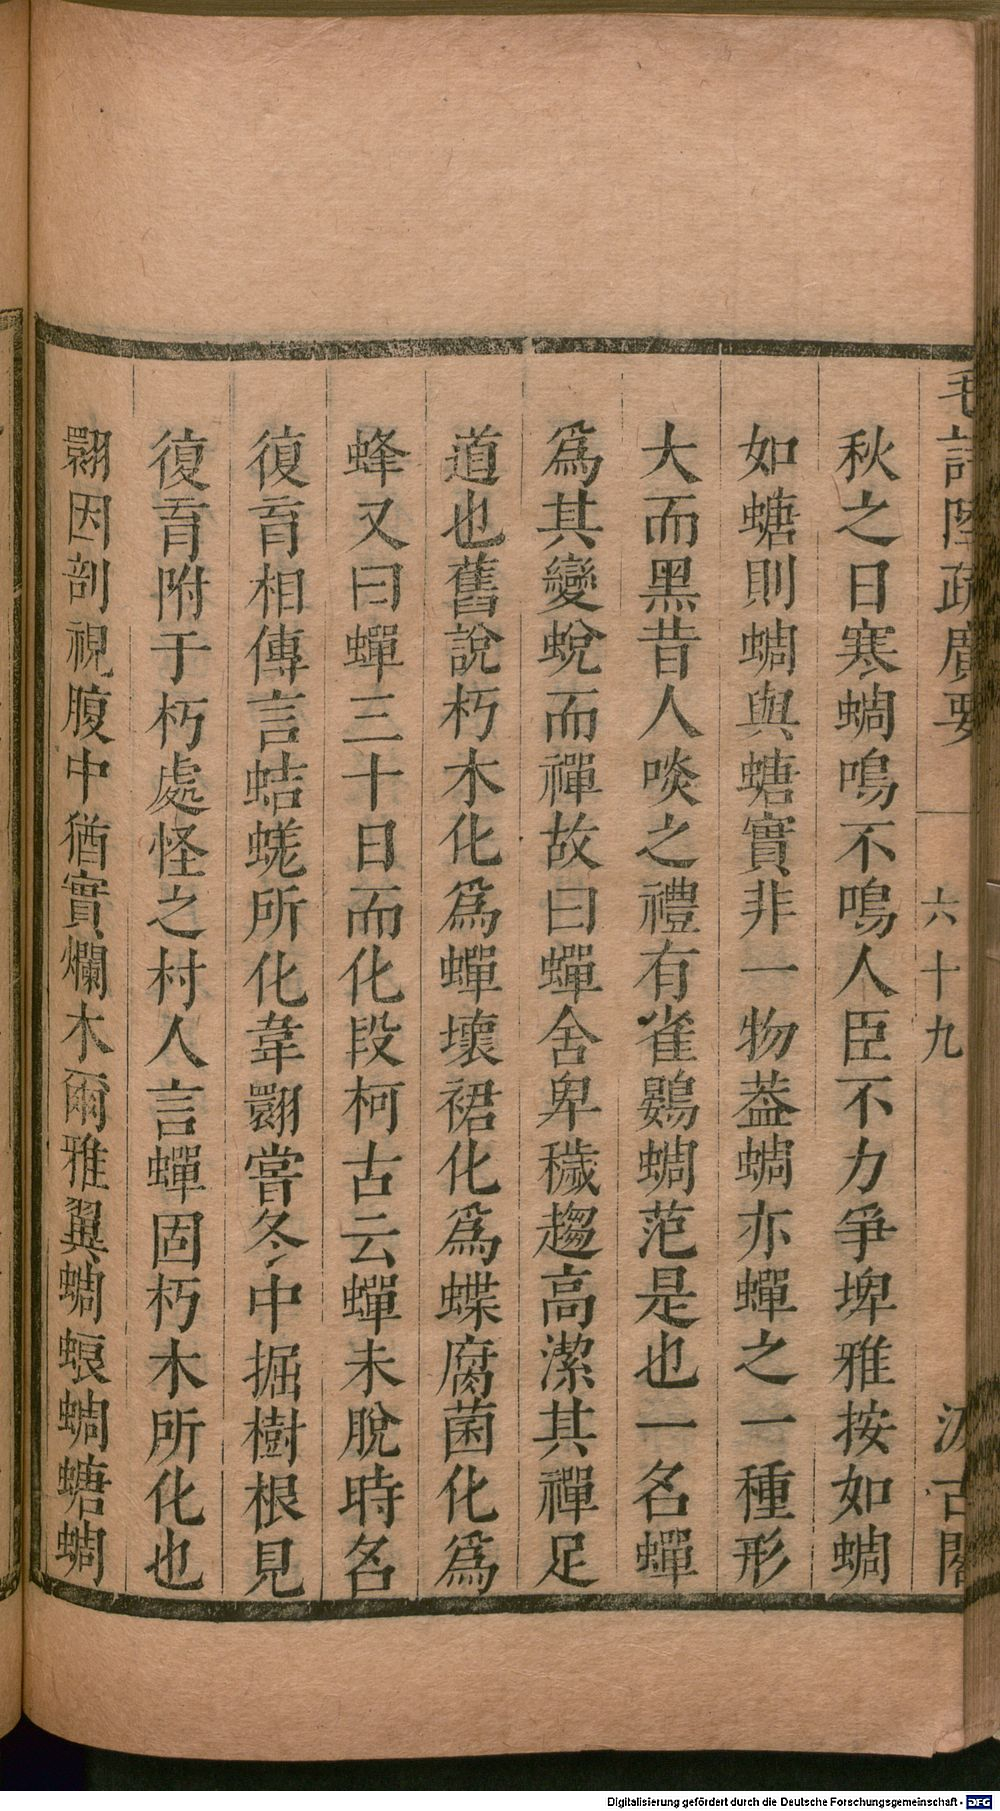 毛詩陸疏廣要 六十九 汲古閣
秋之日寒蜩鳴不鳴人臣不力爭埤雅按如蜩
如螗則蜩與螗實非一物葢蜩亦蟬之一種形
大而黑昔人啖之禮有雀鷃蜩范是也一名蟬
爲其變蛻而禪故曰蟬舍卑穢趨高潔其禪足
道也舊說朽木化爲蟬壞裙化爲蝶腐菌化爲
蜂又曰蟬三十日而化段柯古云蟬未脫時名
復育相傳言蛣蜣所化韋翾嘗冬中掘樹根見
復育附于朽處怪之村人言蟬固朽木所化也
翾因剖視腹中猶實爛木爾雅翼蜩蜋蜩螗蜩
Digitalisierung gefördert durch die Deutsche Forschungsgemeinschaft - DFG